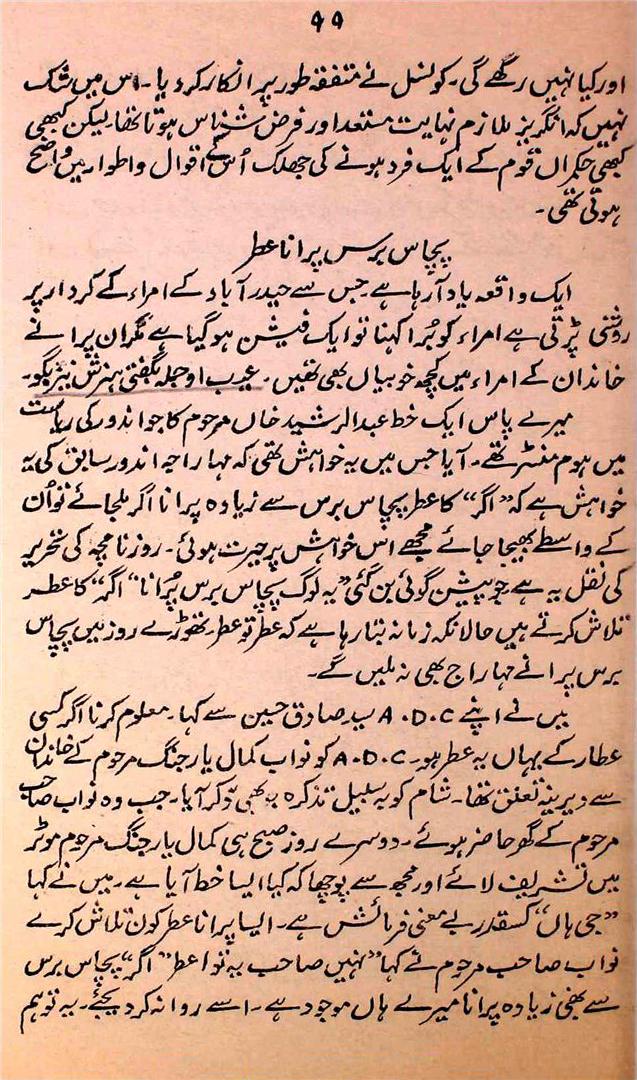 ۹۹
اور کیا نہیں رکھے گی۔ کونسل نے متفقہ طور پر انکار کر دیا۔ اس میں شک
نہیں کہ انگریز ملازم نہایت مستعد اور فرض شناس ہوتا تھا۔ لیکن کبھی
کبھی حکمراں قوم کے ایک فرد ہونے کی جھلک اُس کے اقوال و اطوار میں واضح
ہوتی تھی۔
پچاس برس پرانا عطر
ایک واقعہ یاد آرہا ہے جس سے حیدرآباد کے امراء کے کردار پر
روشنی پڑتی ہے امراء کو بُرا کہنا تو ایک فیشن ہوگیا ہے مگر ان پرانے
خاندان کے امراء میں کچھ خوبیاں بھی تھیں۔ عیب او جملہ بگفتی ہنرش نیز بگو۔
میرے پاس ایک خط عبدالرشید خاں مرحوم کا جو اندور کی ریاست
میں ہوم منسٹر تھے۔ آیا جس میں یہ خواہش تھی کہ مہاراجہ اندور سابق کی یہ
خواہش ہے کہ "اگر" کا عطر پچاس برس سے زیادہ پرانا اگر ملجائے تو اُن
کے واسطے بھیجا جائے مجھے اس خواہش پر حیرت ہوئی۔ روزنامچہ کی تحریر
کی نقل یہ ہے جو پیشن گوئی بن گئی "یہ لوگ پچاس برس پُرانا "اگر" کا عطر
تلاش کرتے ہیں حالانکہ زمانہ بتا رہا ہے کہ عطر تو عطر۔ تھوڑے روز میں پچاس
برس پرانے مہاراج بھی نہ ملیں گے۔
میں نے اپنے A.D.C سید صادق حسین سے کہا۔ معلوم کرنا اگر کسی
عطار کے یہاں یہ عطر ہو۔ A.D.C کو نواب کمال یار جنگ مرحوم کے خاندان
سے دیرینہ تعلق تھا۔ شام کو بہ سبیل تذکرہ یہ بھی ذکر آیا۔ جب وہ نواب صاحب
مرحوم کے گھر حاضر ہوئے۔ دوسرے روز صبح ہی کمال یار جنگ مرحوم موٹر
میں تشریف لائے اور مجھ سے پوچھا کہ کیا ایسا خط آیا ہے۔ میں نے کہا
"جی ہاں" کسقدر بے معنی فرمائش ہے۔ ایسا پرانا عطر کون تلاش کرے
نواب صاحب مرحوم نے کہا "نہیں صاحب یہ تو عطر "اگر" پچاس برس
سے بھی زیادہ پرانا میرے ہاں موجود ہے۔ اسے روانہ کر دیجئے۔ یہ تو ہم